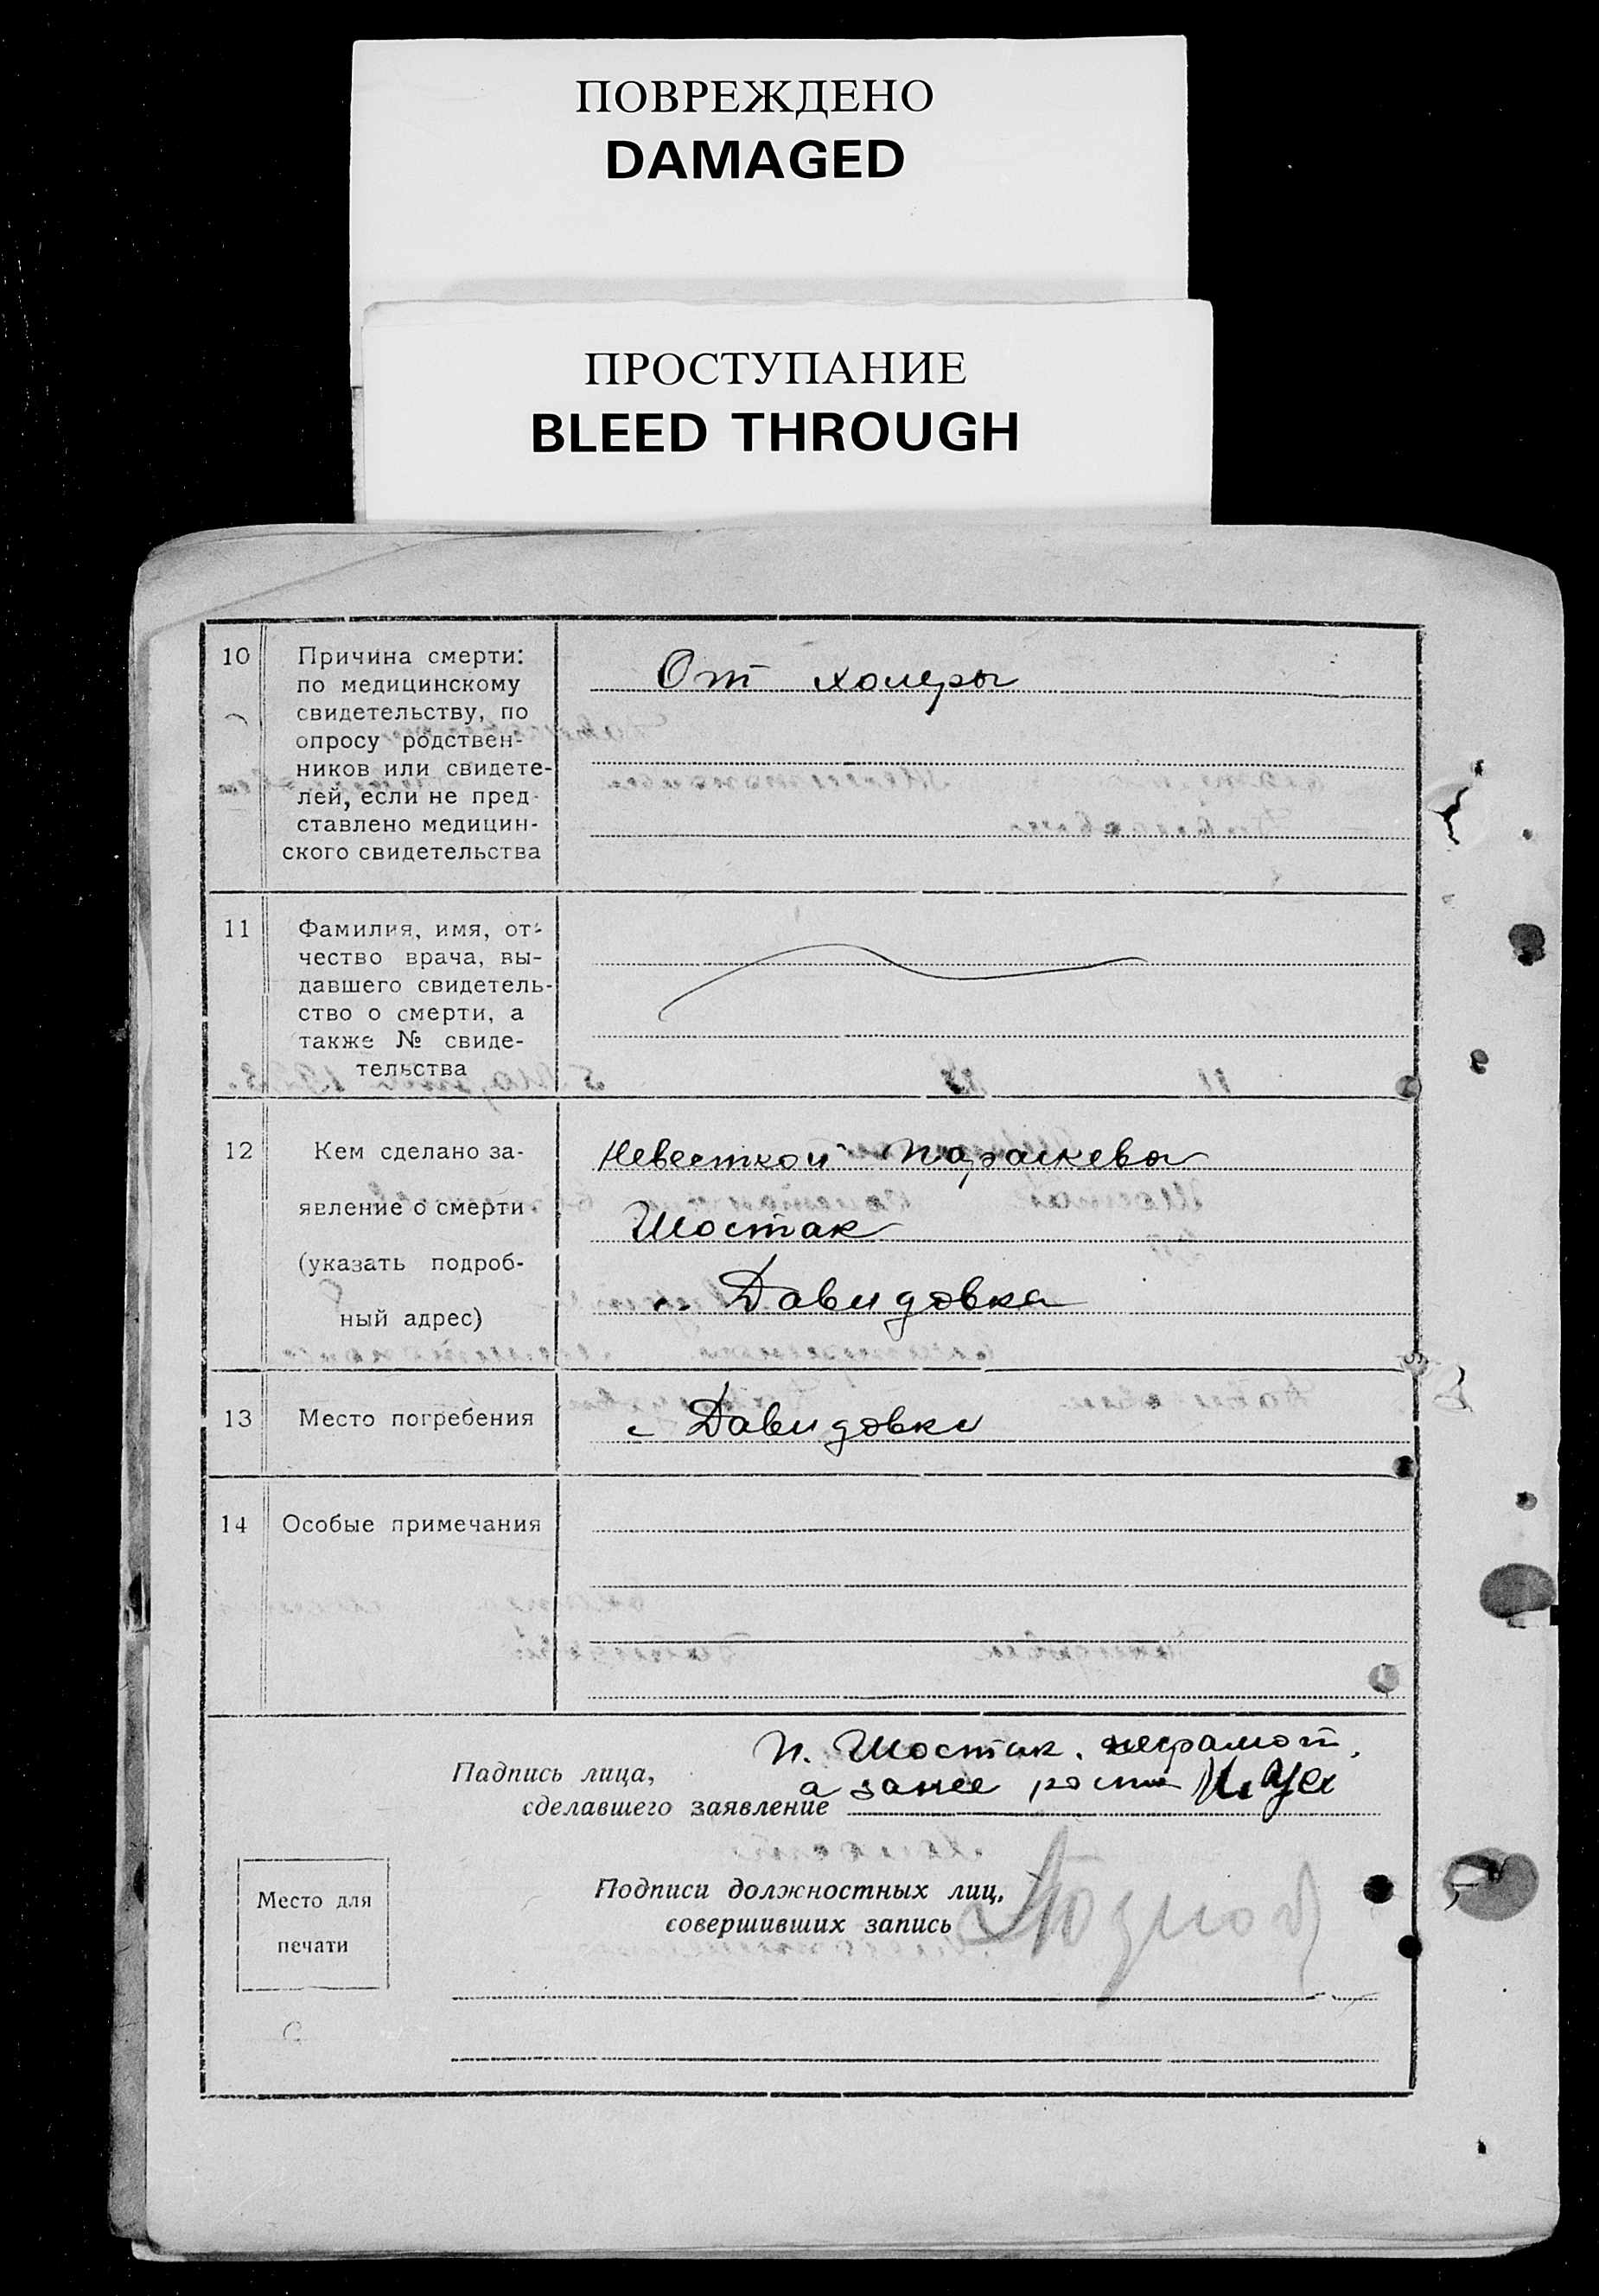 ПОВРЕЖДЕНО
DAMAGED
ПРОСТУПАНИЕ
BLEED THROUGH
10
Причина смерти:
по медицинскому
свидетельству, по
опросу родствен-
ников или свидете-
лей, если не пред-
ставлено медицин-
ского свидетельства
От холеры
11
Фамилия, имя, от-
чество врача, вы-
давшего свидетель-
ство о смерти, а
также № свиде-
тельства
12
Кем сделано за-
явление о смерти
(указать подроб-
ный адрес)
Невесткой Параскева
Шостак
с. Давидовка
13
Место погребения
с Давидовка
14
Особые примечания
Падпись лица,
сделавшего заявление
П. Шостак. неграмот.
а за нее
Место для
печати
Подписи должностных лиц,
совершивших запись